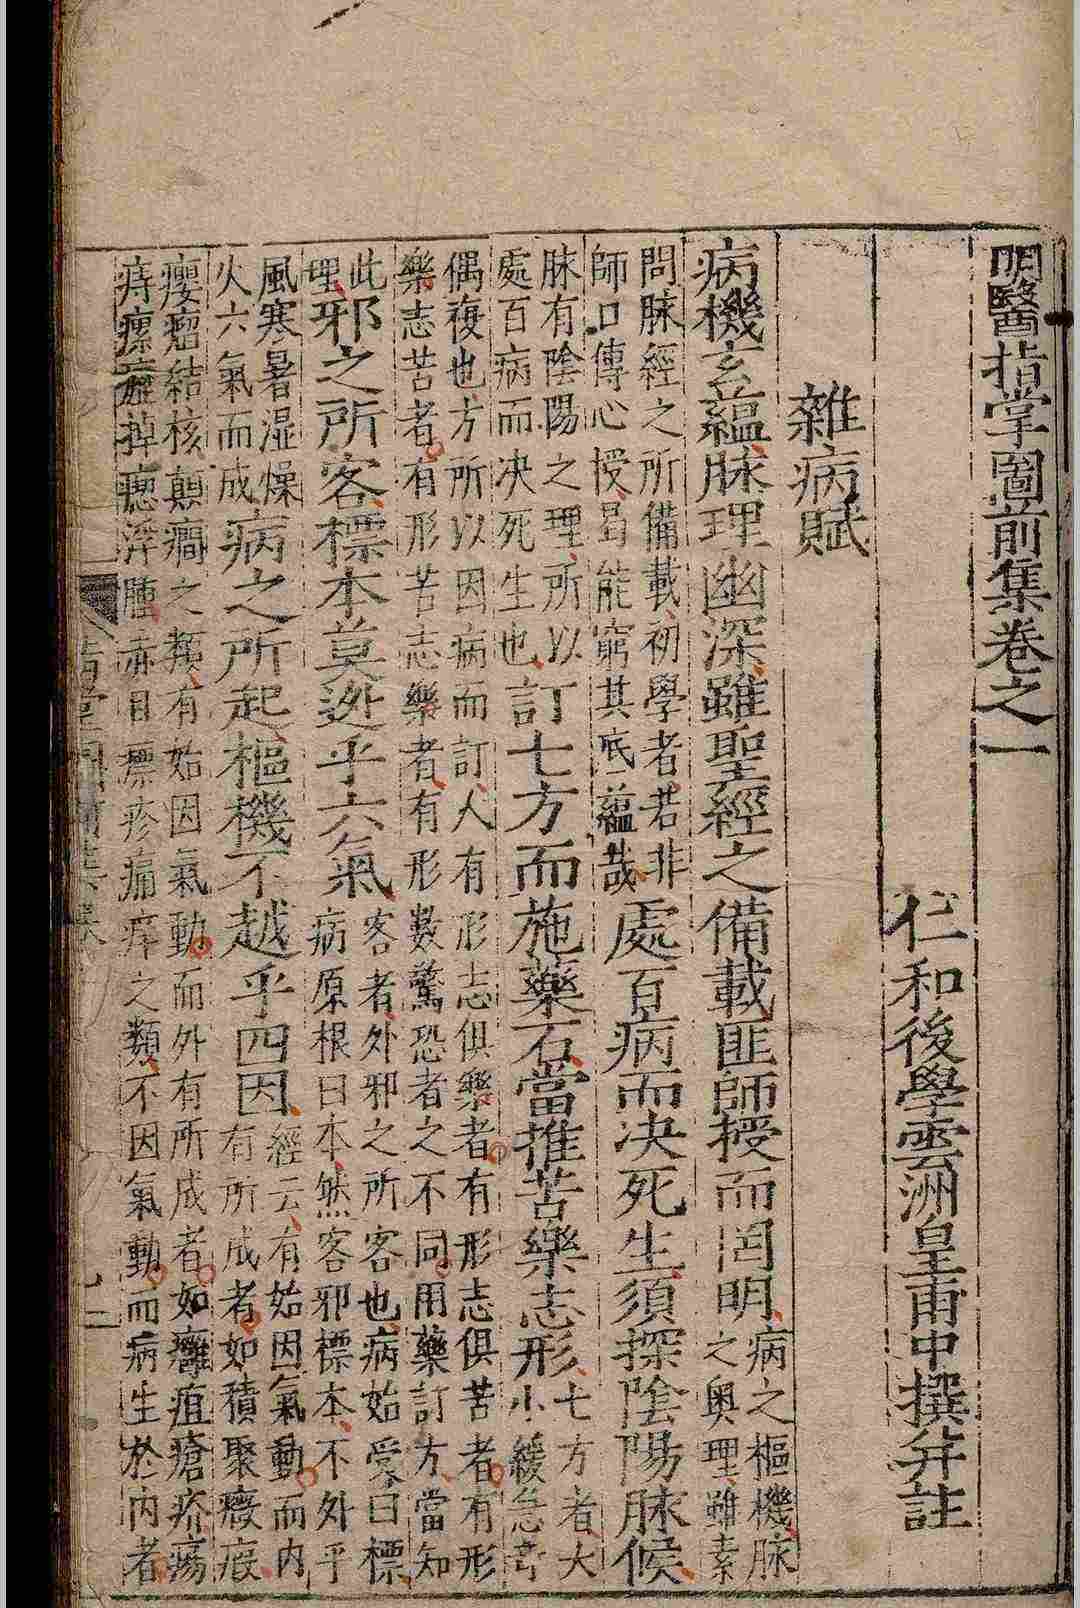 明醫指掌圖前集卷之一
仁和後學雲洲皇甫中撰并註
雜病賦
病機玄蘊脉理幽深雖聖經之備載匪師授而罔明病之樞機脉
之奧理雖素
問脉經之所備載初學者若非
師口傳心授曷能窮其底蘊哉處百病而决死生須探陰陽脉候
脉有陰陽之理所以
處百病而决死生也訂七方而施藥石當推苦樂志形七方者大
小緩急竒
偶複也方所以因病而訂人有形志俱樂者有形志俱苦者有形
樂志苦者有形苦志樂者有形數驚恐者之不同用藥訂方當知
此
理邪之所客標本莫逃乎六氣客者外邪之所客也病始受曰標
病原根曰本然客邪標本不外乎
風寒暑湿燥
火六氣而成病之所起樞機不越乎四因經云有始因氣動而內
有所成者如積聚癥瘕
癭瘤結核顛癎之類有始因氣動而外有所成者如癰疽瘡疥瘍
痔瘰掉瘛浮腫赤目瘭疹痛痒之類不因氣動而病生於內者